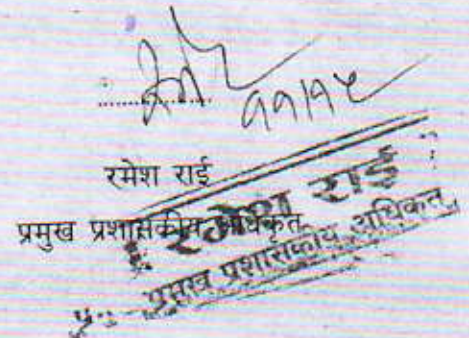 ११/१५
रमेश राई
प्रमुख प्रशासकीय अधिकृत
रमेश राई
प्रमुख प्रशासकीय अधिकृत